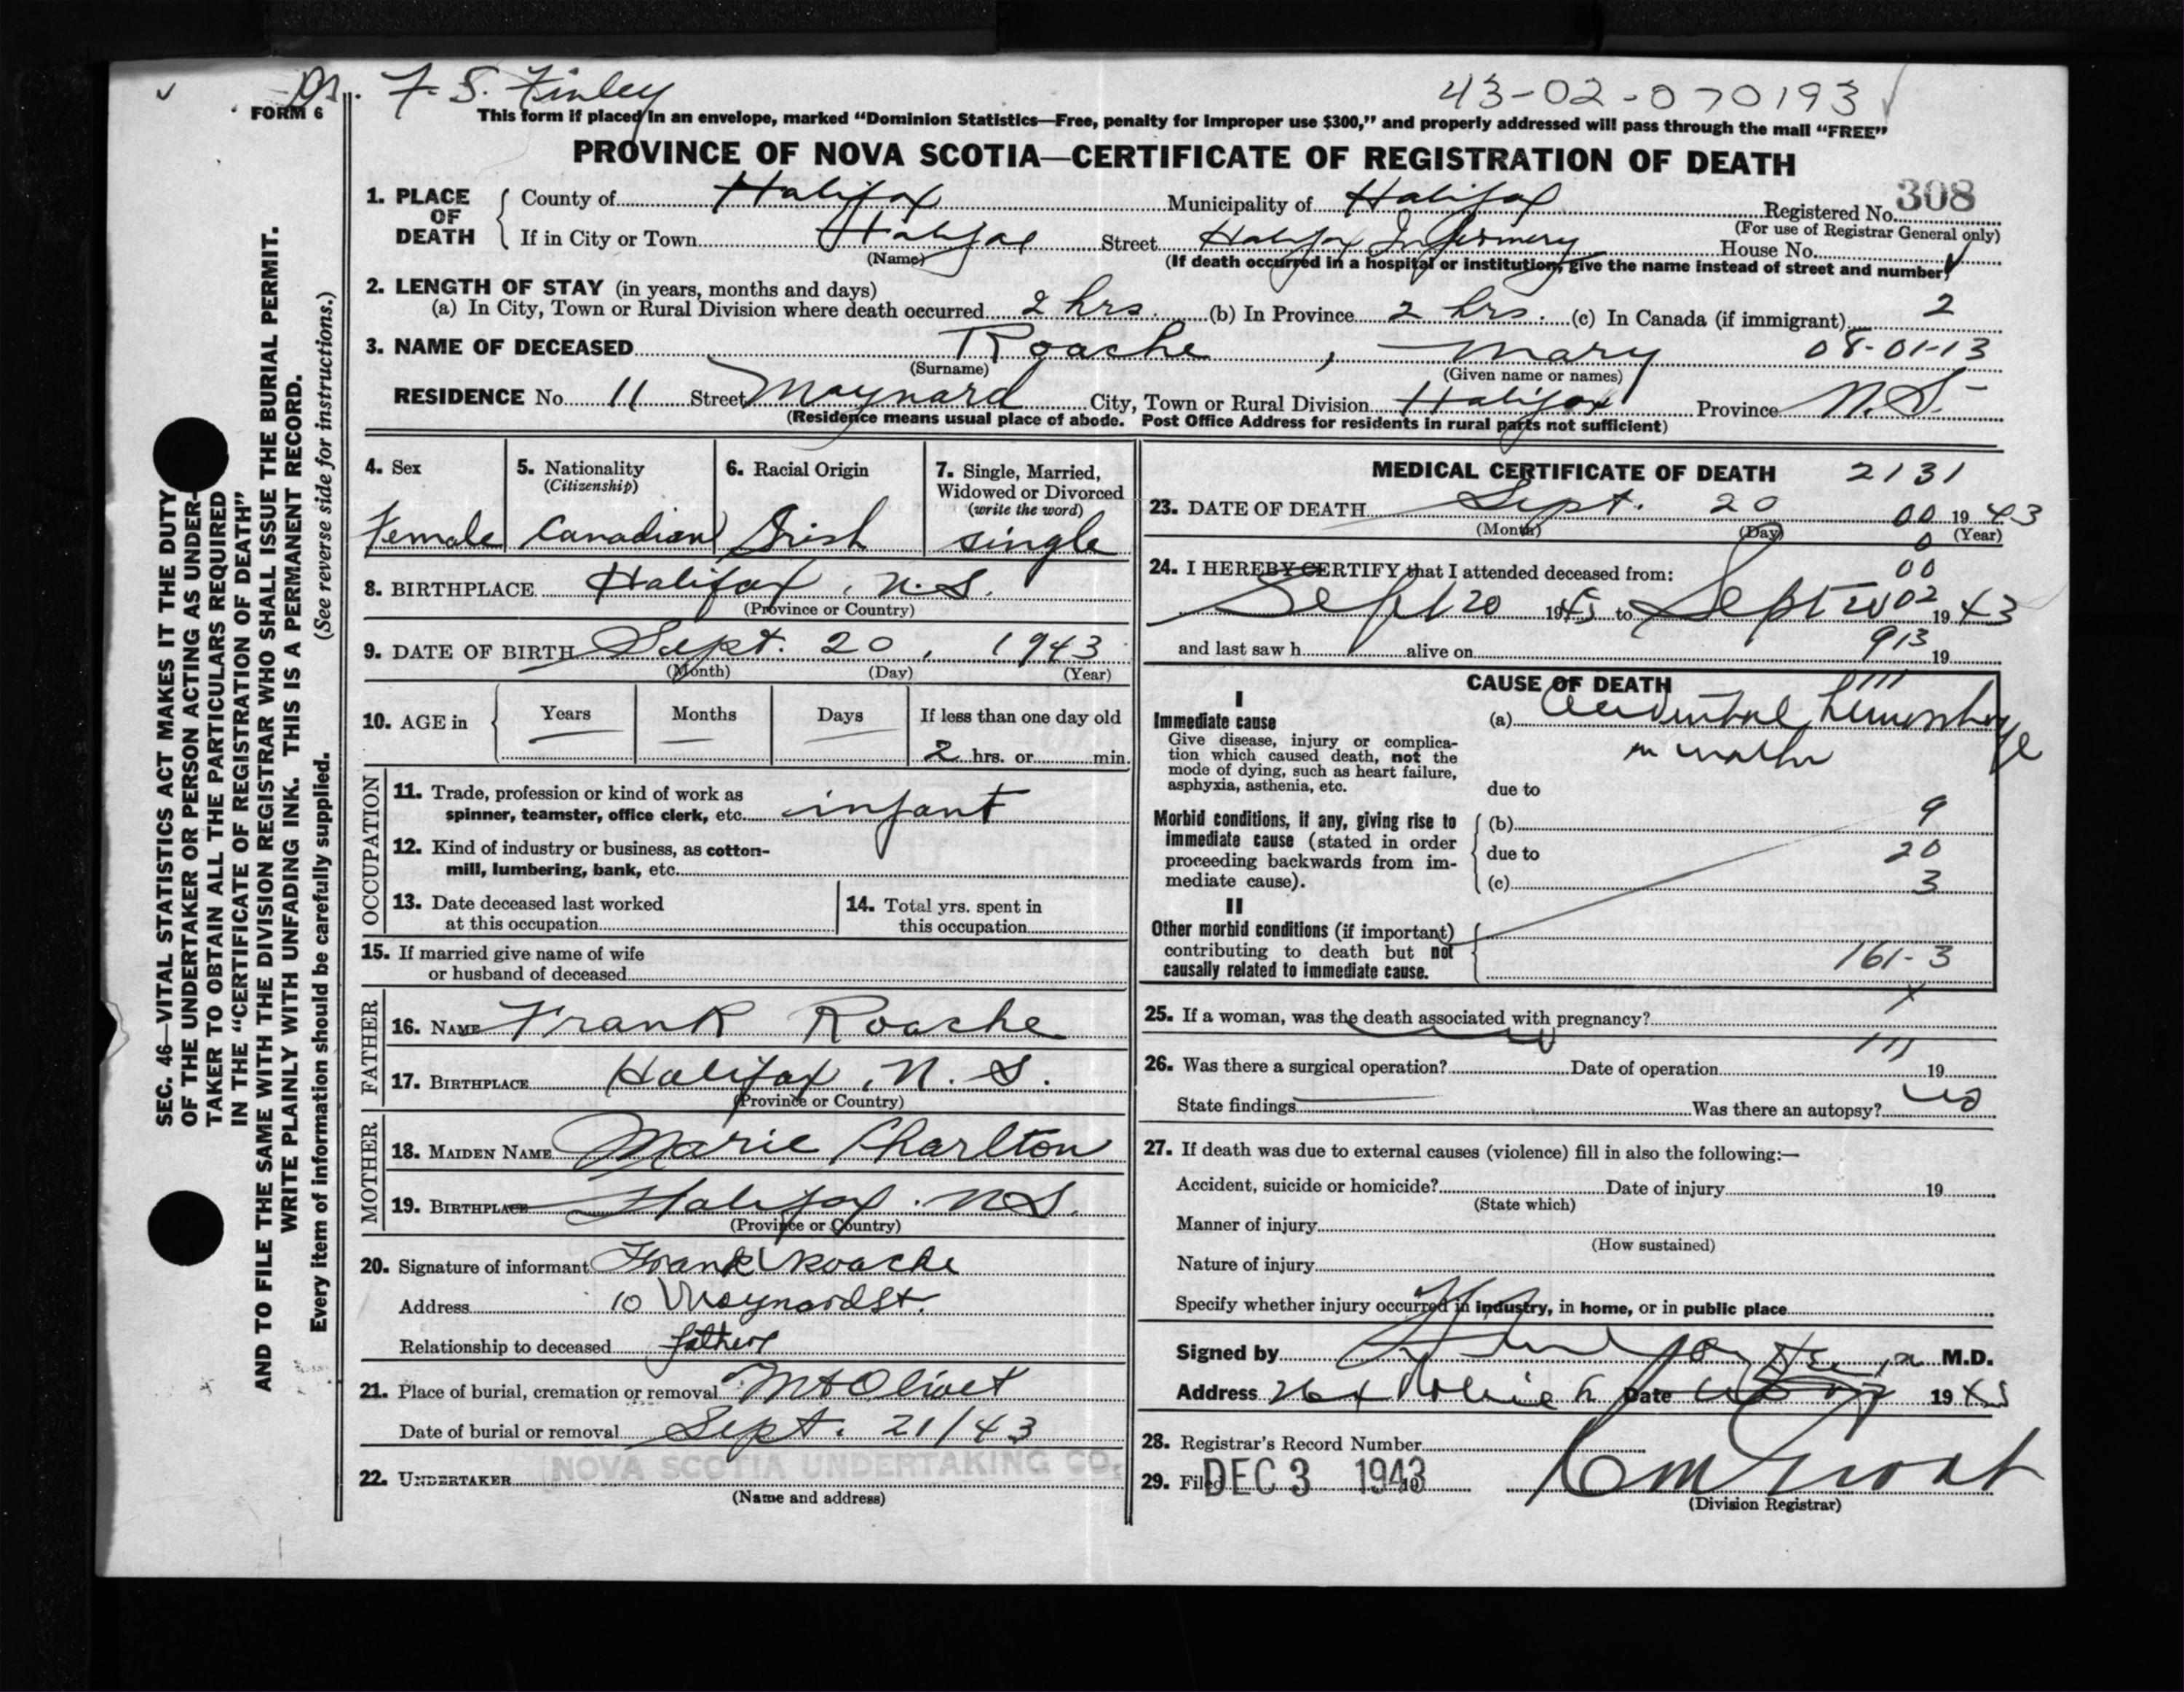 Dr. F. S. Finley
43-02-070193
FORM 6
This form if placed in an envelope, marked “Dominion Statistics—Free, penalty for improper use $300,” and properly addressed will pass through the mail “FREE”
PROVINCE OF NOVA SCOTIA—CERTIFICATE OF REGISTRATION OF DEATH
1. PLACE OF DEATH
County of Halifax Municipality of Halifax Registered No. 308
(For use of Registrar General only)
If in City or Town Halifax Street Halifax Infirmery House No.
(Name) (If death occurred in a hospital or institution, give the name instead of street and number)
2. LENGTH OF STAY (in years, months and days)
(a) In City, Town or Rural Division where death occurred 2 hrs. (b) In Province 2 hrs. (c) In Canada (if immigrant) 2
3. NAME OF DECEASED Roache, Mary 08-01-13
(Surname) (Given name or names)
RESIDENCE No. 11 Street Maynard City, Town or Rural Division Halifax Province N.S.
(Residence means usual place of abode. Post Office Address for residents in rural parts not sufficient)
4. Sex
Female
5. Nationality
(Citizenship)
Canadian
6. Racial Origin
Irish
7. Single, Married,
Widowed or Divorced
(write the word)
single
8. BIRTHPLACE Halifax, N.S.
(Province or Country)
9. DATE OF BIRTH Sept. 20, 1943
(Month) (Day) (Year)
10. AGE in Years Months Days If less than one day old
2 hrs. or min.
OCCUPATION
11. Trade, profession or kind of work as
spinner, teamster, office clerk, etc. infant
12. Kind of industry or business, as cotton-
mill, lumbering, bank, etc.
13. Date deceased last worked
at this occupation
14. Total yrs. spent in
this occupation
15. If married give name of wife
or husband of deceased
FATHER
16. NAME Frank Roache
17. BIRTHPLACE Halifax, N.S.
(Province or Country)
MOTHER
18. MAIDEN NAME Marie Charlton
19. BIRTHPLACE Halifax. N.S.
(Province or Country)
20. Signature of informant Frank Roache
Address 10 Maynard St.
Relationship to deceased father
21. Place of burial, cremation or removal Mt Olivet
Date of burial or removal Sept. 21/43
22. UNDERTAKER NOVA SCOTIA UNDERTAKING CO.
(Name and address)
MEDICAL CERTIFICATE OF DEATH 2131
23. DATE OF DEATH Sept. 20 00 1943
(Month) (Day) (Year)
0
24. I HEREBY CERTIFY that I attended deceased from: 00
Sept 20 1943 to Sept 20 02 1943
and last saw h alive on 913 19
CAUSE OF DEATH
111
I
Immediate cause
Give disease, injury or complica-
tion which caused death, not the
mode of dying, such as heart failure,
asphyxia, asthenia, etc.
(a) Accidental hemorrhage
in mother
due to
Morbid conditions, if any, giving rise to
immediate cause (stated in order
proceeding backwards from im-
mediate cause).
(b) 9
due to 20
(c) 3
II
Other morbid conditions (if important)
contributing to death but not
causally related to immediate cause.
161-3
25. If a woman, was the death associated with pregnancy?
26. Was there a surgical operation? Date of operation 111 19
State findings Was there an autopsy? no
27. If death was due to external causes (violence) fill in also the following:—
Accident, suicide or homicide? Date of injury 19
(State which)
Manner of injury
(How sustained)
Nature of injury
Specify whether injury occurred in industry, in home, or in public place
Signed by M.D.
Address Date 1943
28. Registrar's Record Number
29. Filed DEC 3 1943
(Division Registrar)
SEC. 46—VITAL STATISTICS ACT MAKES IT THE DUTY
OF THE UNDERTAKER OR PERSON ACTING AS UNDER-
TAKER TO OBTAIN ALL THE PARTICULARS REQUIRED
IN THE “CERTIFICATE OF REGISTRATION OF DEATH”
AND TO FILE THE SAME WITH THE DIVISION REGISTRAR WHO SHALL ISSUE THE BURIAL PERMIT.
WRITE PLAINLY WITH UNFADING INK. THIS IS A PERMANENT RECORD.
Every item of information should be carefully supplied. (See reverse side for instructions.)